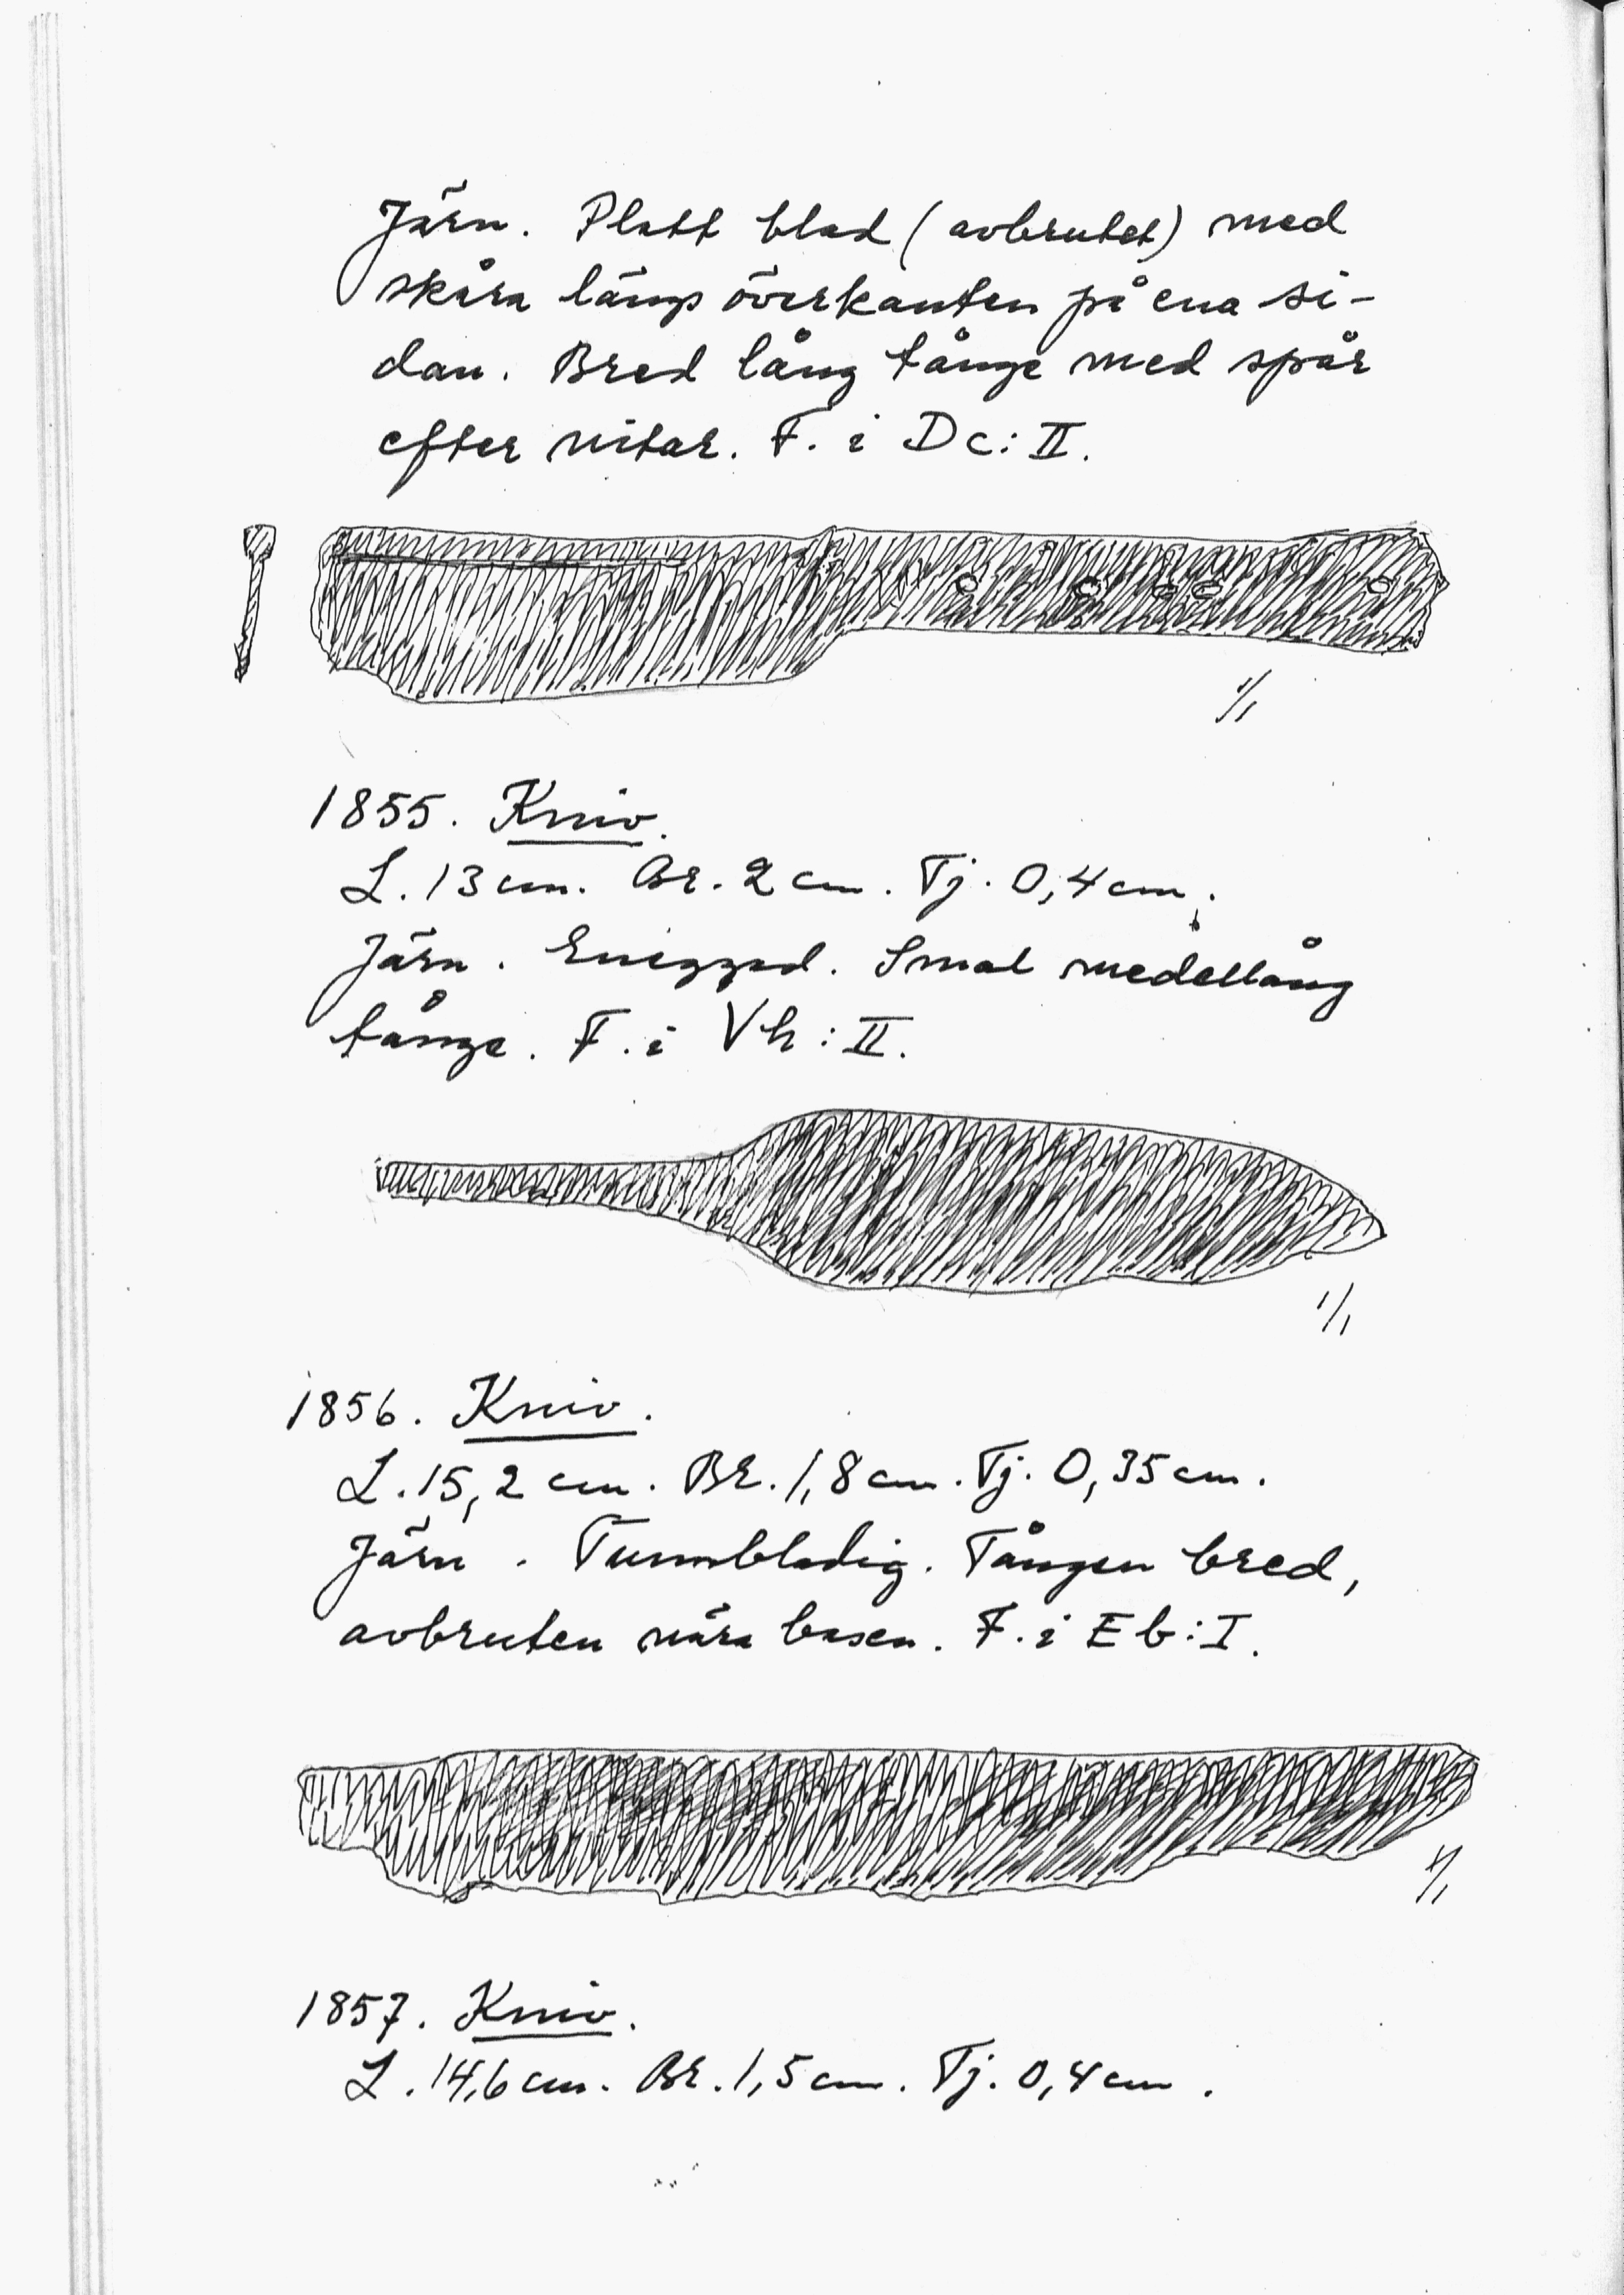 Järn. Platt blad (avbrutet) med
skåra längs överkanten på ena si-
dan. Bred lång tånge med spår
efter nitar. F. i Dc: II.
1/1
1855. Kniv.
L. 13 cm. Br. 2 cm. Tj. 0,4 cm.
Järn. Eneggad. Smal medellång
tånge. F. i Vh: II.
1/1
1856. Kniv.
L. 15,2 cm. Br. 1,8 cm. Tj. 0,35 cm.
Järn. Tunnbladig. Tången bred,
avbruten nära basen. F. i Eb: I.
1/1
1857. Kniv.
L. 14,6 cm. Br. 1,5 cm. Tj. 0,4 cm.